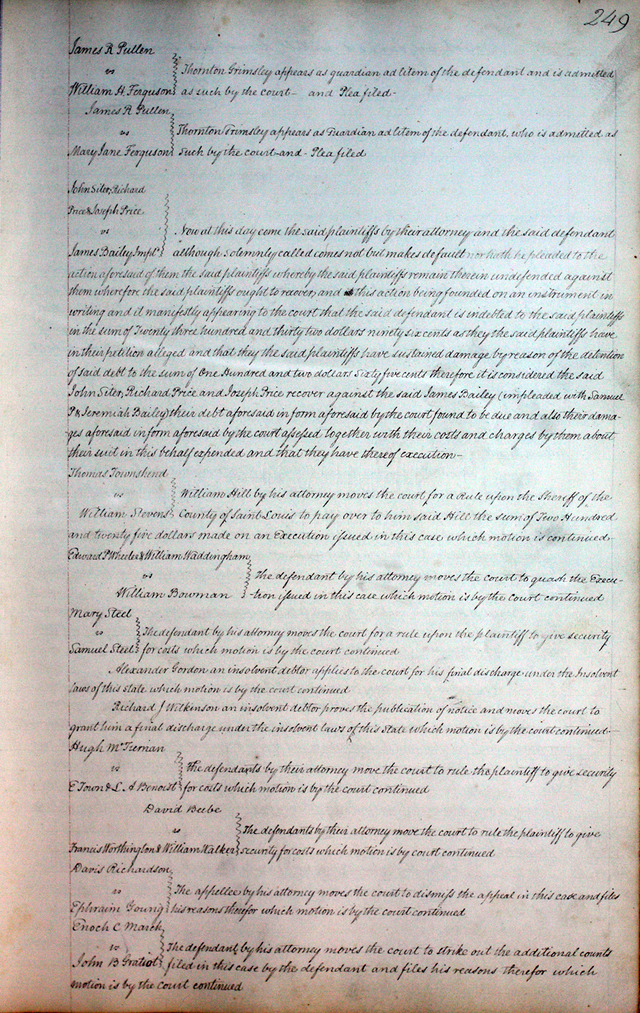 249
James R Pullen
vs
Thornton Grimsley appears as guardian ad litem of the defendant and is admitted
William H. Ferguson as such by the court — and Plea filed —
James R. Pullen
vs
Thornton Grimsley appears as Guardian ad litem of the defendant, who is admitted as
Mary Jane Ferguson such by the court - and - Plea filed
John Siter, Richard
Price & Joseph Price
vs
Now at this day come the said plaintiffs by their attorney and the said defendant
James Bailey Impld although solemnly called comes not but makes default nor hath he pleaded to the
action aforesaid of them the said plaintiffs whereby the said plaintiffs remain therein undefended against
them wherefore the said plaintiffs ought to recover, and this action being founded on an instrument in
writing and it manifestly appearing to the court that the said defendant is indebted to the said plaintiffs
in the sum of Twenty three hundred and thirty two dollars ninety six cents as they the said plaintiffs have
in their petition alleged and that they the said plaintiffs have sustained damage by reason of the detention
of said debt to the sum of One Hundred and two dollars Sixty five cents therefore it is considered the said
John Siter, Richard Price and Joseph Price recover against the said James Bailey (impleaded with Samuel
P & Jeremiah Bailey) their debt aforesaid in form aforesaid by the court found to be due and also their dama-
ges aforesaid in form aforesaid by the court assessed together with their costs and charges by them about
their suit in this behalf expended and that they have thereof execution —
Thomas Townshend
vs
William Hill by his attorney moves the court for a Rule upon the Shereff of the
William Stevens County of Saint Louis to pay over to him said Hill the sum of Two Hundred
and twenty five dollars made on an Execution issued in this case which motion is continued
Edward P Wheeler & William Waddingham
vs
The defendant by his attorney moves the court to quash the Execu-
William Bowman -tion issued in this case which motion is by the court continued
Mary Steel
vs
The defendant by his attorney moves the court for a rule upon the plaintiff to give security
Samuel Steel for costs which motion is by the court continued
Alexander Gordon an insolvent debtor applies to the court for his final discharge under the Insolvent
laws of this state which motion is by the court continued
Richard J Wilkinson an insolvent debtor proves the publication of notice and moves the court to
grant him a final discharge under the insolvent laws of this State which motion is by the court continued —
Hugh McTiernan
vs
the defendants by their attorney move the court to rule the plaintiff to give security
E Town & L. A Benoist for costs which motion is by the court continued
David Beebe
vs
The defendants by their attorney move the court to rule the plaintiff to give
Francis Worthington & William Walker security for costs which motion is by court continued
Davis Richardson
vs
The appellee by his attorney moves the court to dismiss the appeal in this case and files
Ephraim Young his reasons therefor which motion is by the court continued
Enoch C March
vs
The defendant by his attorney moves the court to strike out the additional counts
John B Gratiot filed in this case by the defendant and files his reasons therefor which
motion is by the court continued